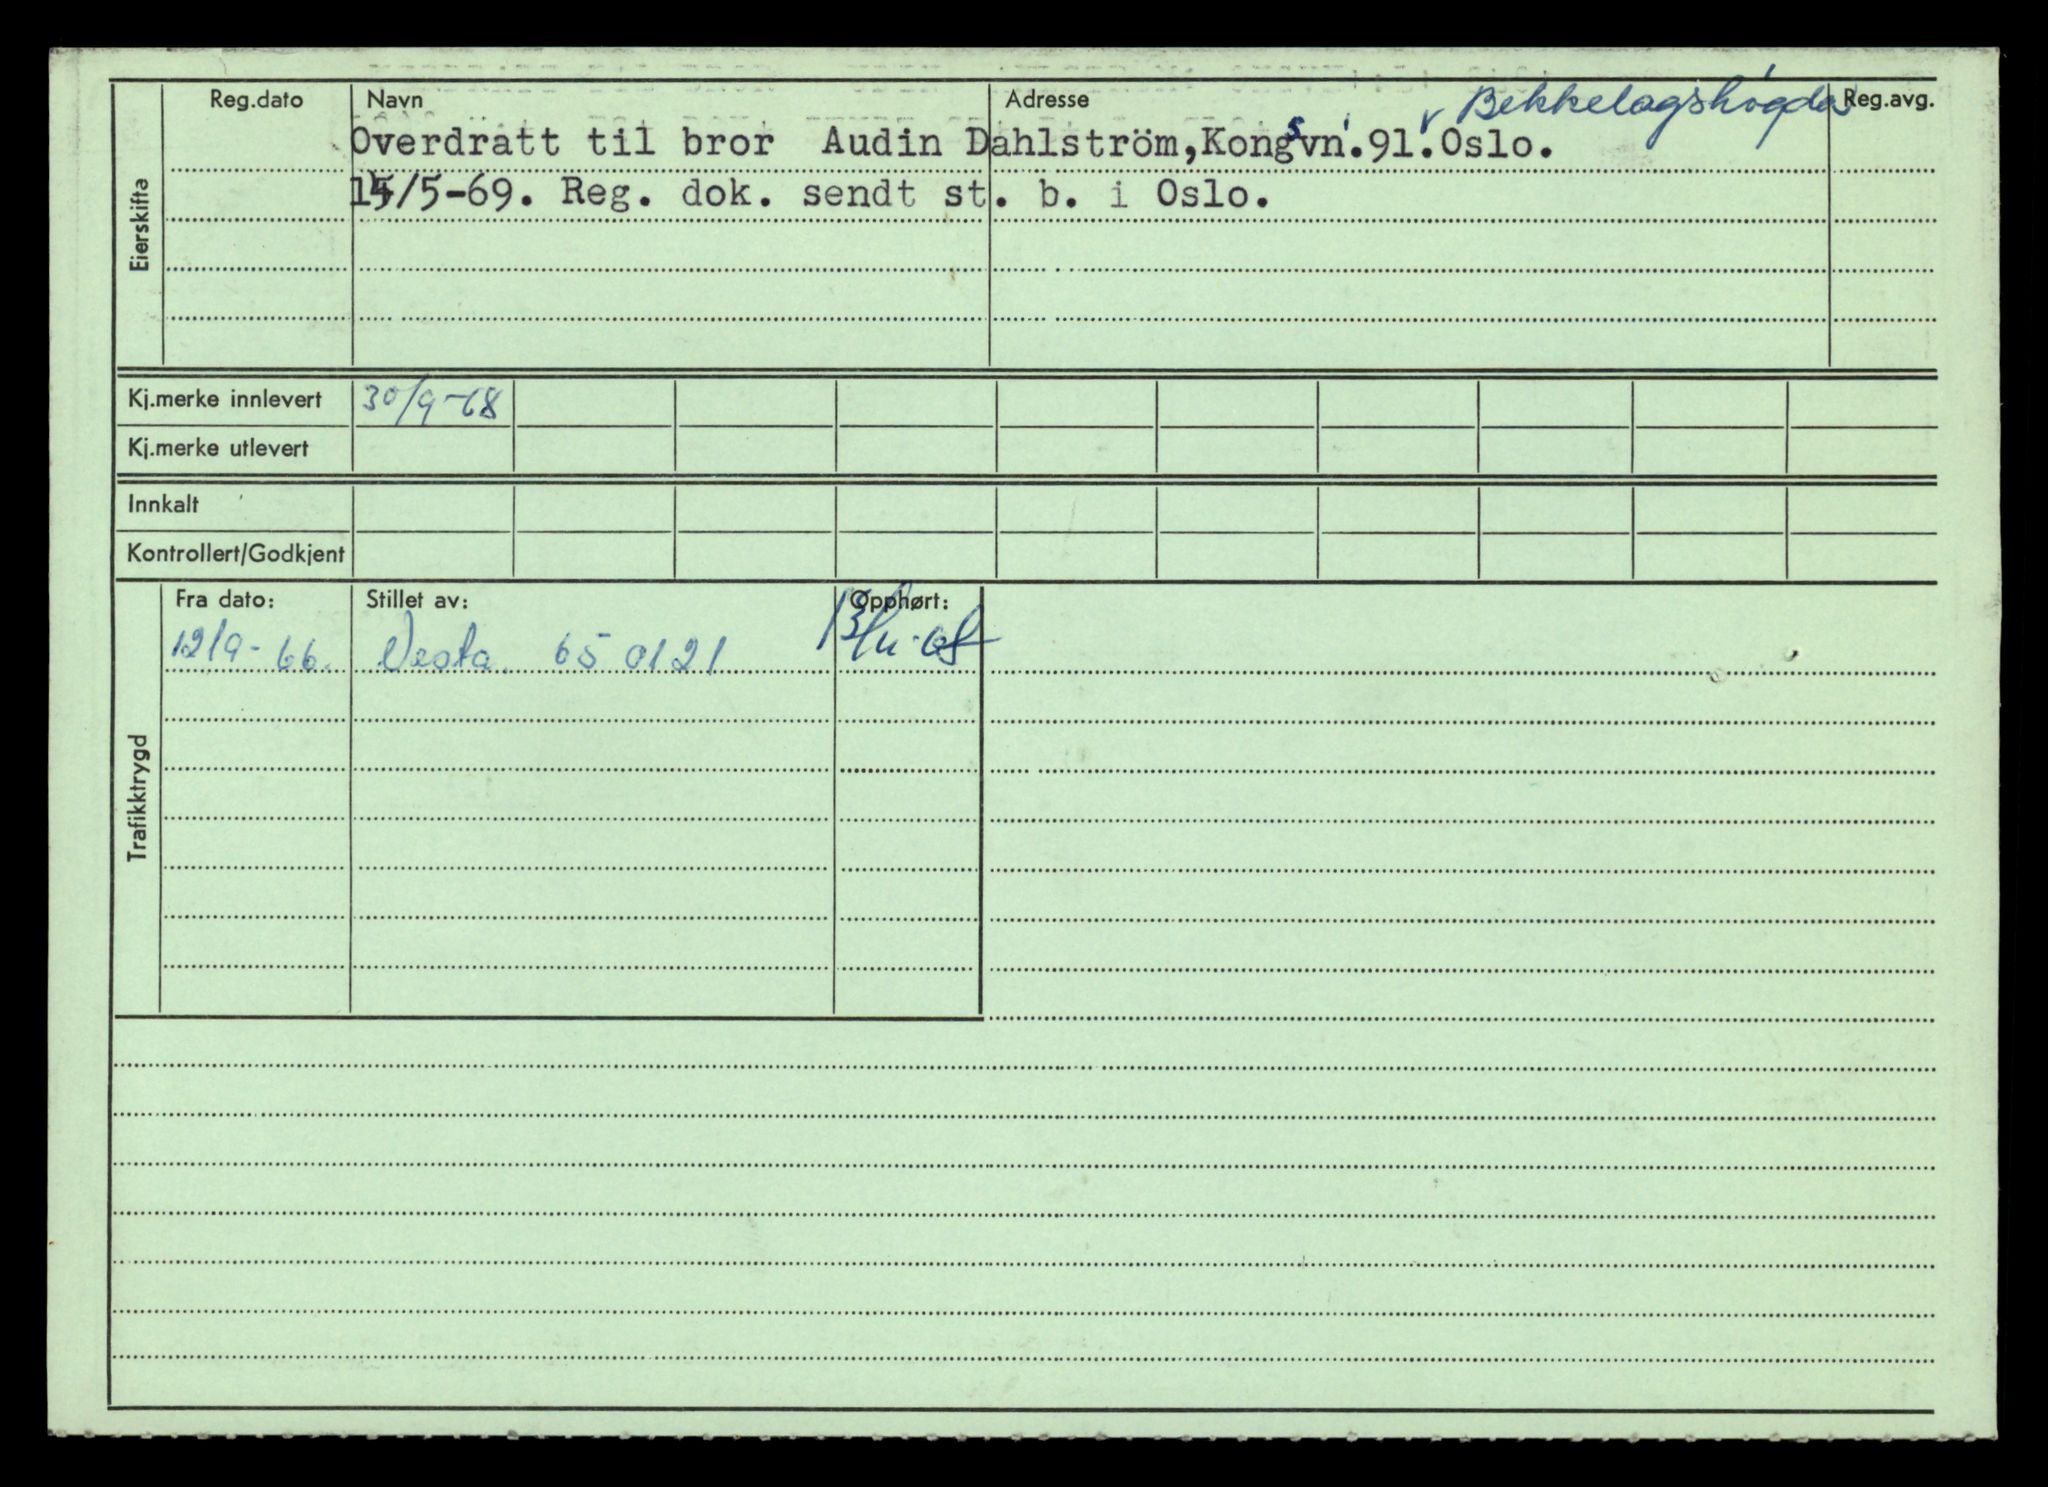 Reg.dato Navn Adresse Bekkelagshögda Reg.avg.
Overdratt til bror Audin Dahlström,Kongsvn.91.Oslo.
/5-69. Reg. dok. sendt st. b. i Oslo.
Eierskifte
Kj.merke innlevert 30/9-68
Kj.merke utlevert
Innkalt
Kontrollert/Godkjent
Fra dato: Stillet av: Opphørt:
12/9-66. Vesta. 65 0121
Trafikktrygd